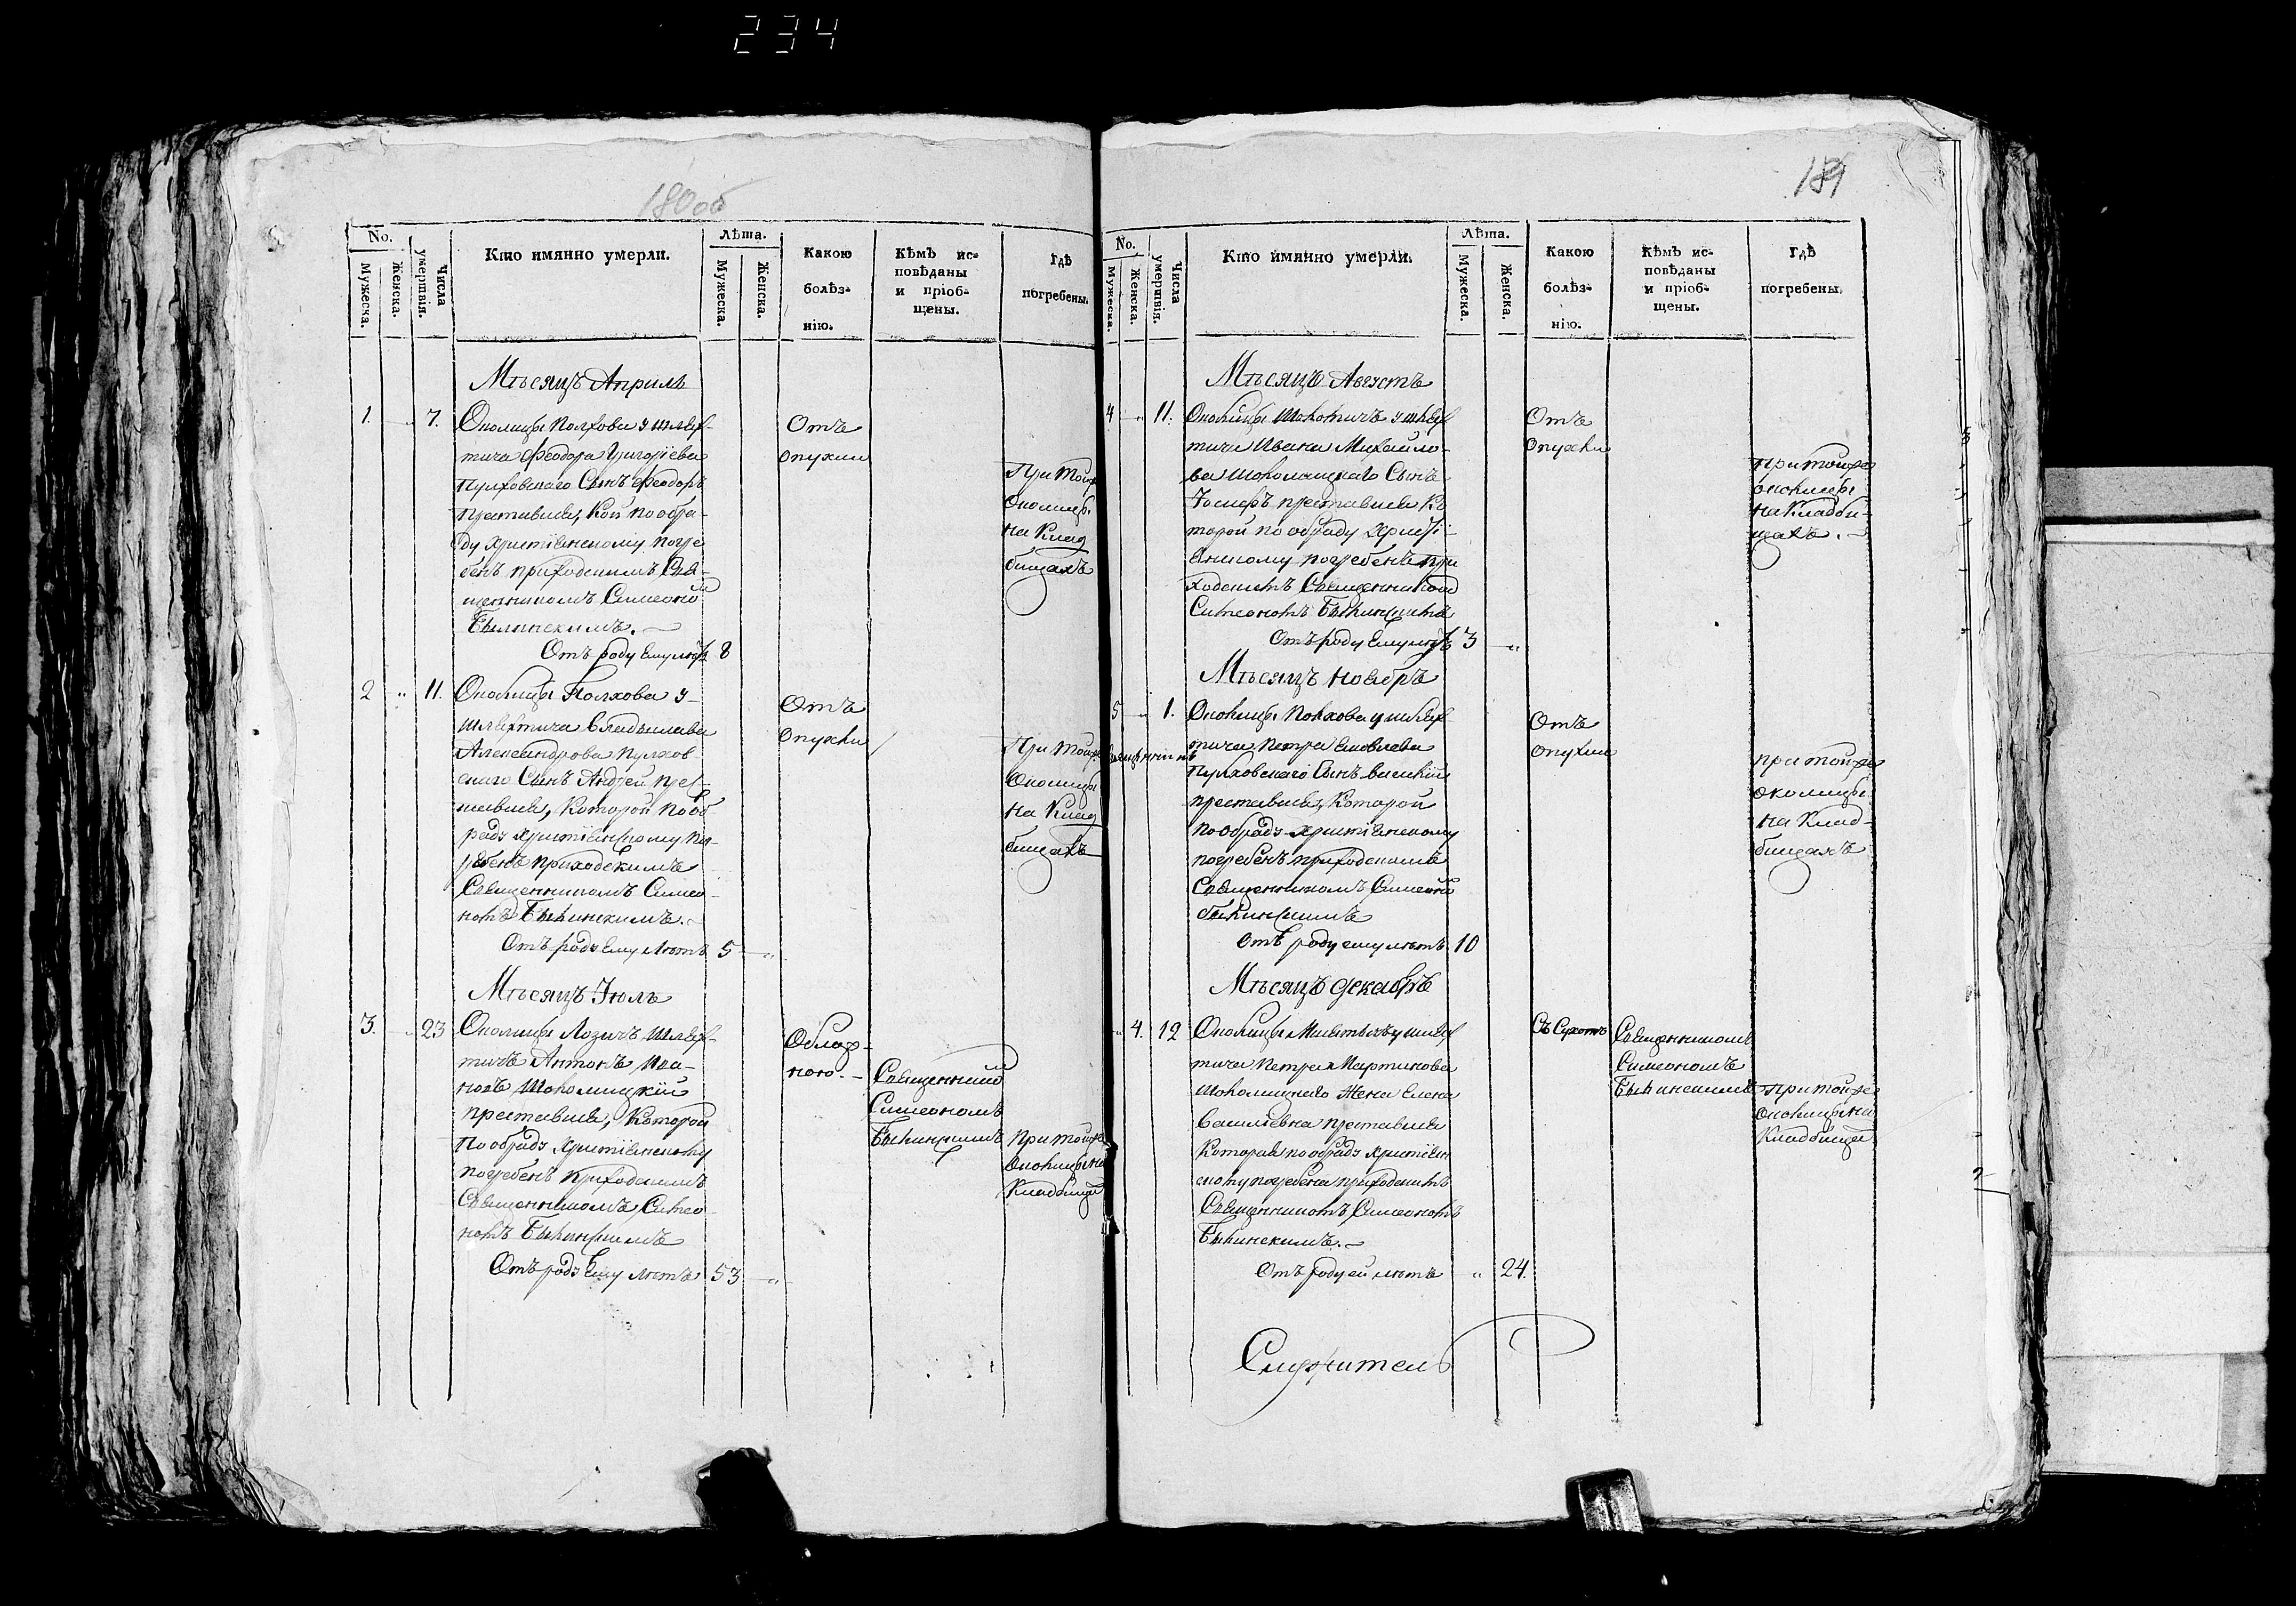 234
180об
No.
Мужеска.
Женска.
Числа умертвія.
Кто имянно умерли.
Лѣта.
Мужеска.
Женска.
Какою
болѣз-
нію.
Кѣмъ ис-
повѣданы
и пріоб-
щены.
Гдѣ
погребены.
Мѣсяцъ Априль
1. „ 7. Околицы Полхова у шлях-
тича Феодора Григоріева
Пулховскаго Сынъ Феодоръ
преставися, кой по обра-
ду христіянскому погре
бенъ приходскимъ Свя-
щенникомъ Симеоно
Былинскимъ.
Отъ роду ему лѣтъ 8
Отъ
опухли
При тойже
Околицы
на Клад
бищахъ
2 „ 11. Околицы Полхова у
шляхтича Владыслава
Александрова Пулхов
скаго Сынъ Андрей пре-
ставися, которой по об-
раду христіянскому по-
гребенъ приходскимъ
Священникомъ Симео-
номъ Былинскимъ.
Отъ роду ему лѣтъ 5 „
Отъ
опухли
При тойже
Околицы
на Клад
бищахъ
Мѣсяцъ Іюль
3. „ 23 Околицы Лозичъ шлях-
тичъ Антонъ Ива-
новъ Шоломицкій
преставися, которой
по обраду христіянскому
погребенъ приходскимъ
Священникомъ Симео-
номъ Былинскимъ
Отъ роду ему лѣтъ 53 „
Облож-
ною.
Священнико
Симеономъ
Былинскимъ
при тойже
околицы на
Кладбищи
181
No.
Мужеска.
Женска.
Числа умертвія.
Кто имянно умерли.
Лѣта.
Мужеска.
Женска.
Какою
болѣз-
нію.
Кѣмъ ис-
повѣданы
и пріоб-
щены.
Гдѣ
погребены.
Мѣсяцъ Августъ
4 „ 11. Околицы у шлях
тича Ивана Михайло-
ва Шоломицкаго Сынъ
Іосифъ преставися ко
торой по обраду христі-
янскому погребенъ при
ходскимъ Священникомъ
Симеономъ Былинскимъ
Отъ роду ему лѣтъ 3 „
Отъ
опухли
При тойже
околицы
на Кладби-
щахъ.
Мѣсяцъ Ноябрь
5 „ 1. Околицы Полхова у шлях
тича Петра Яковлева
Пулховскаго Сынъ Василій
преставися, которой
по обраду христіянскому
погребенъ приходскимъ
Священникомъ Симеоно
Былинскимъ
Отъ роду ему лѣтъ 10
Отъ
опухли
при тойже
околицы
на Клад-
бищахъ
Мѣсяцъ Декабрь
„ 4. 12 Околицы у шлях
тича Петра Мартинова
Шоломицкаго Жена Елена
Васильевна преставися
которая по обраду христіян
скому погребена приходскимъ
Священникомъ Симеономъ
Былинскимъ.
Отъ роду ей лѣтъ „ 24.
Съ Сухотъ
Священникомъ
Симеономъ
Былинскимъ
При тойже
околицы на
Кладбищи
Служитель